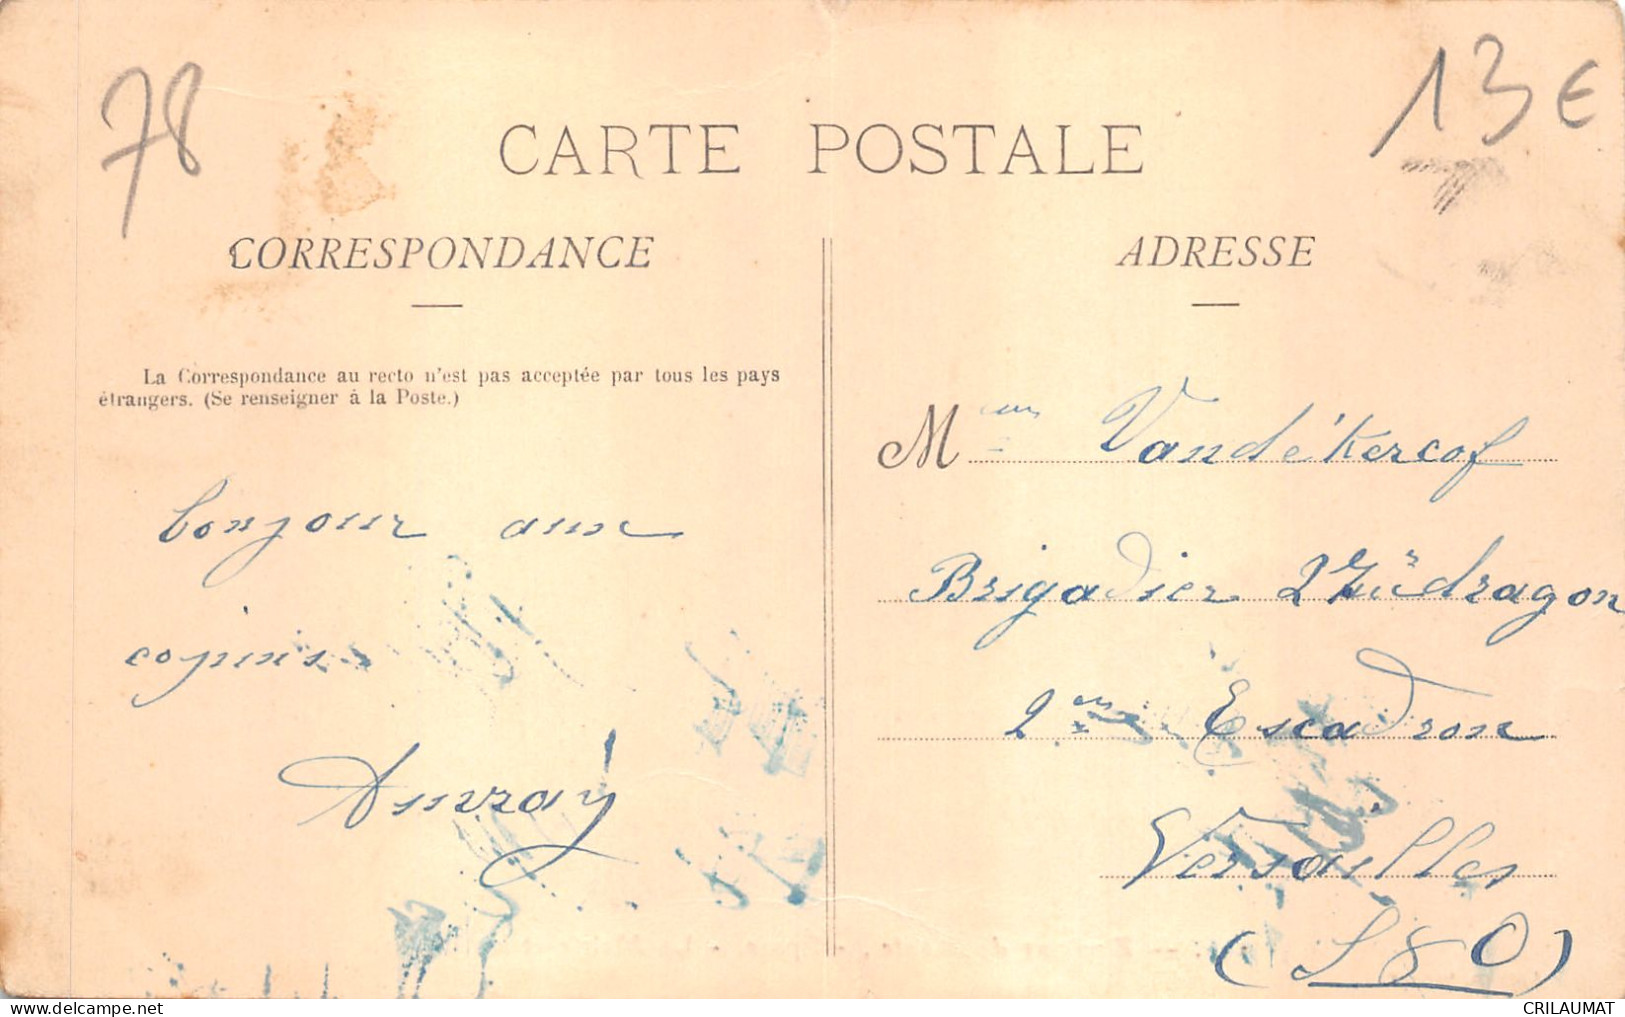 78
13 €
CARTE POSTALE
CORRESPONDANCE
ADRESSE
La Correspondance au recto n'est pas acceptée par tous les pays
étrangers. (Se renseigner à la Poste.)
bonjour aux
copins
M Vandékercof
Brigadier dragon
2me Escadron
Versailles
(S & O)
CRILAUMAT